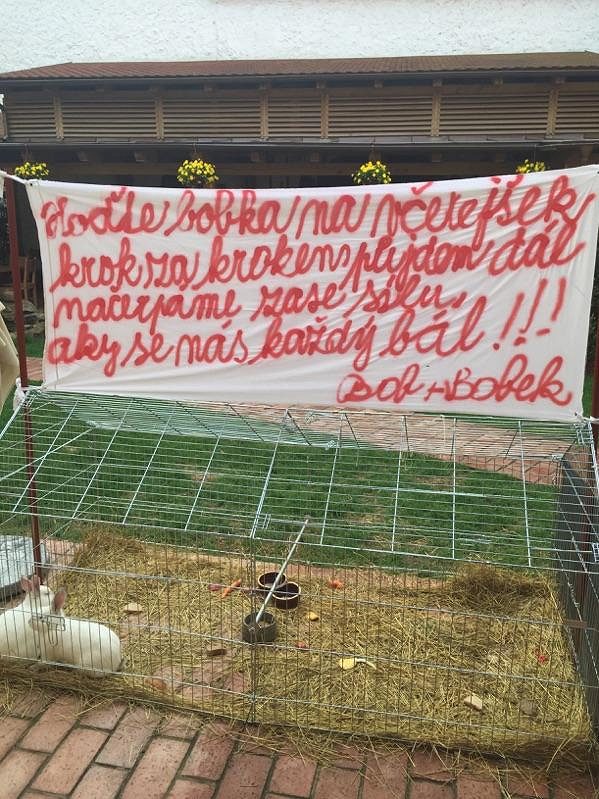 Hoďte bobka na včerejšek
krok za krokem půjdem dál
načerpáme zase sílu,
aby se nás každý bál!!!
Bob + Bobek